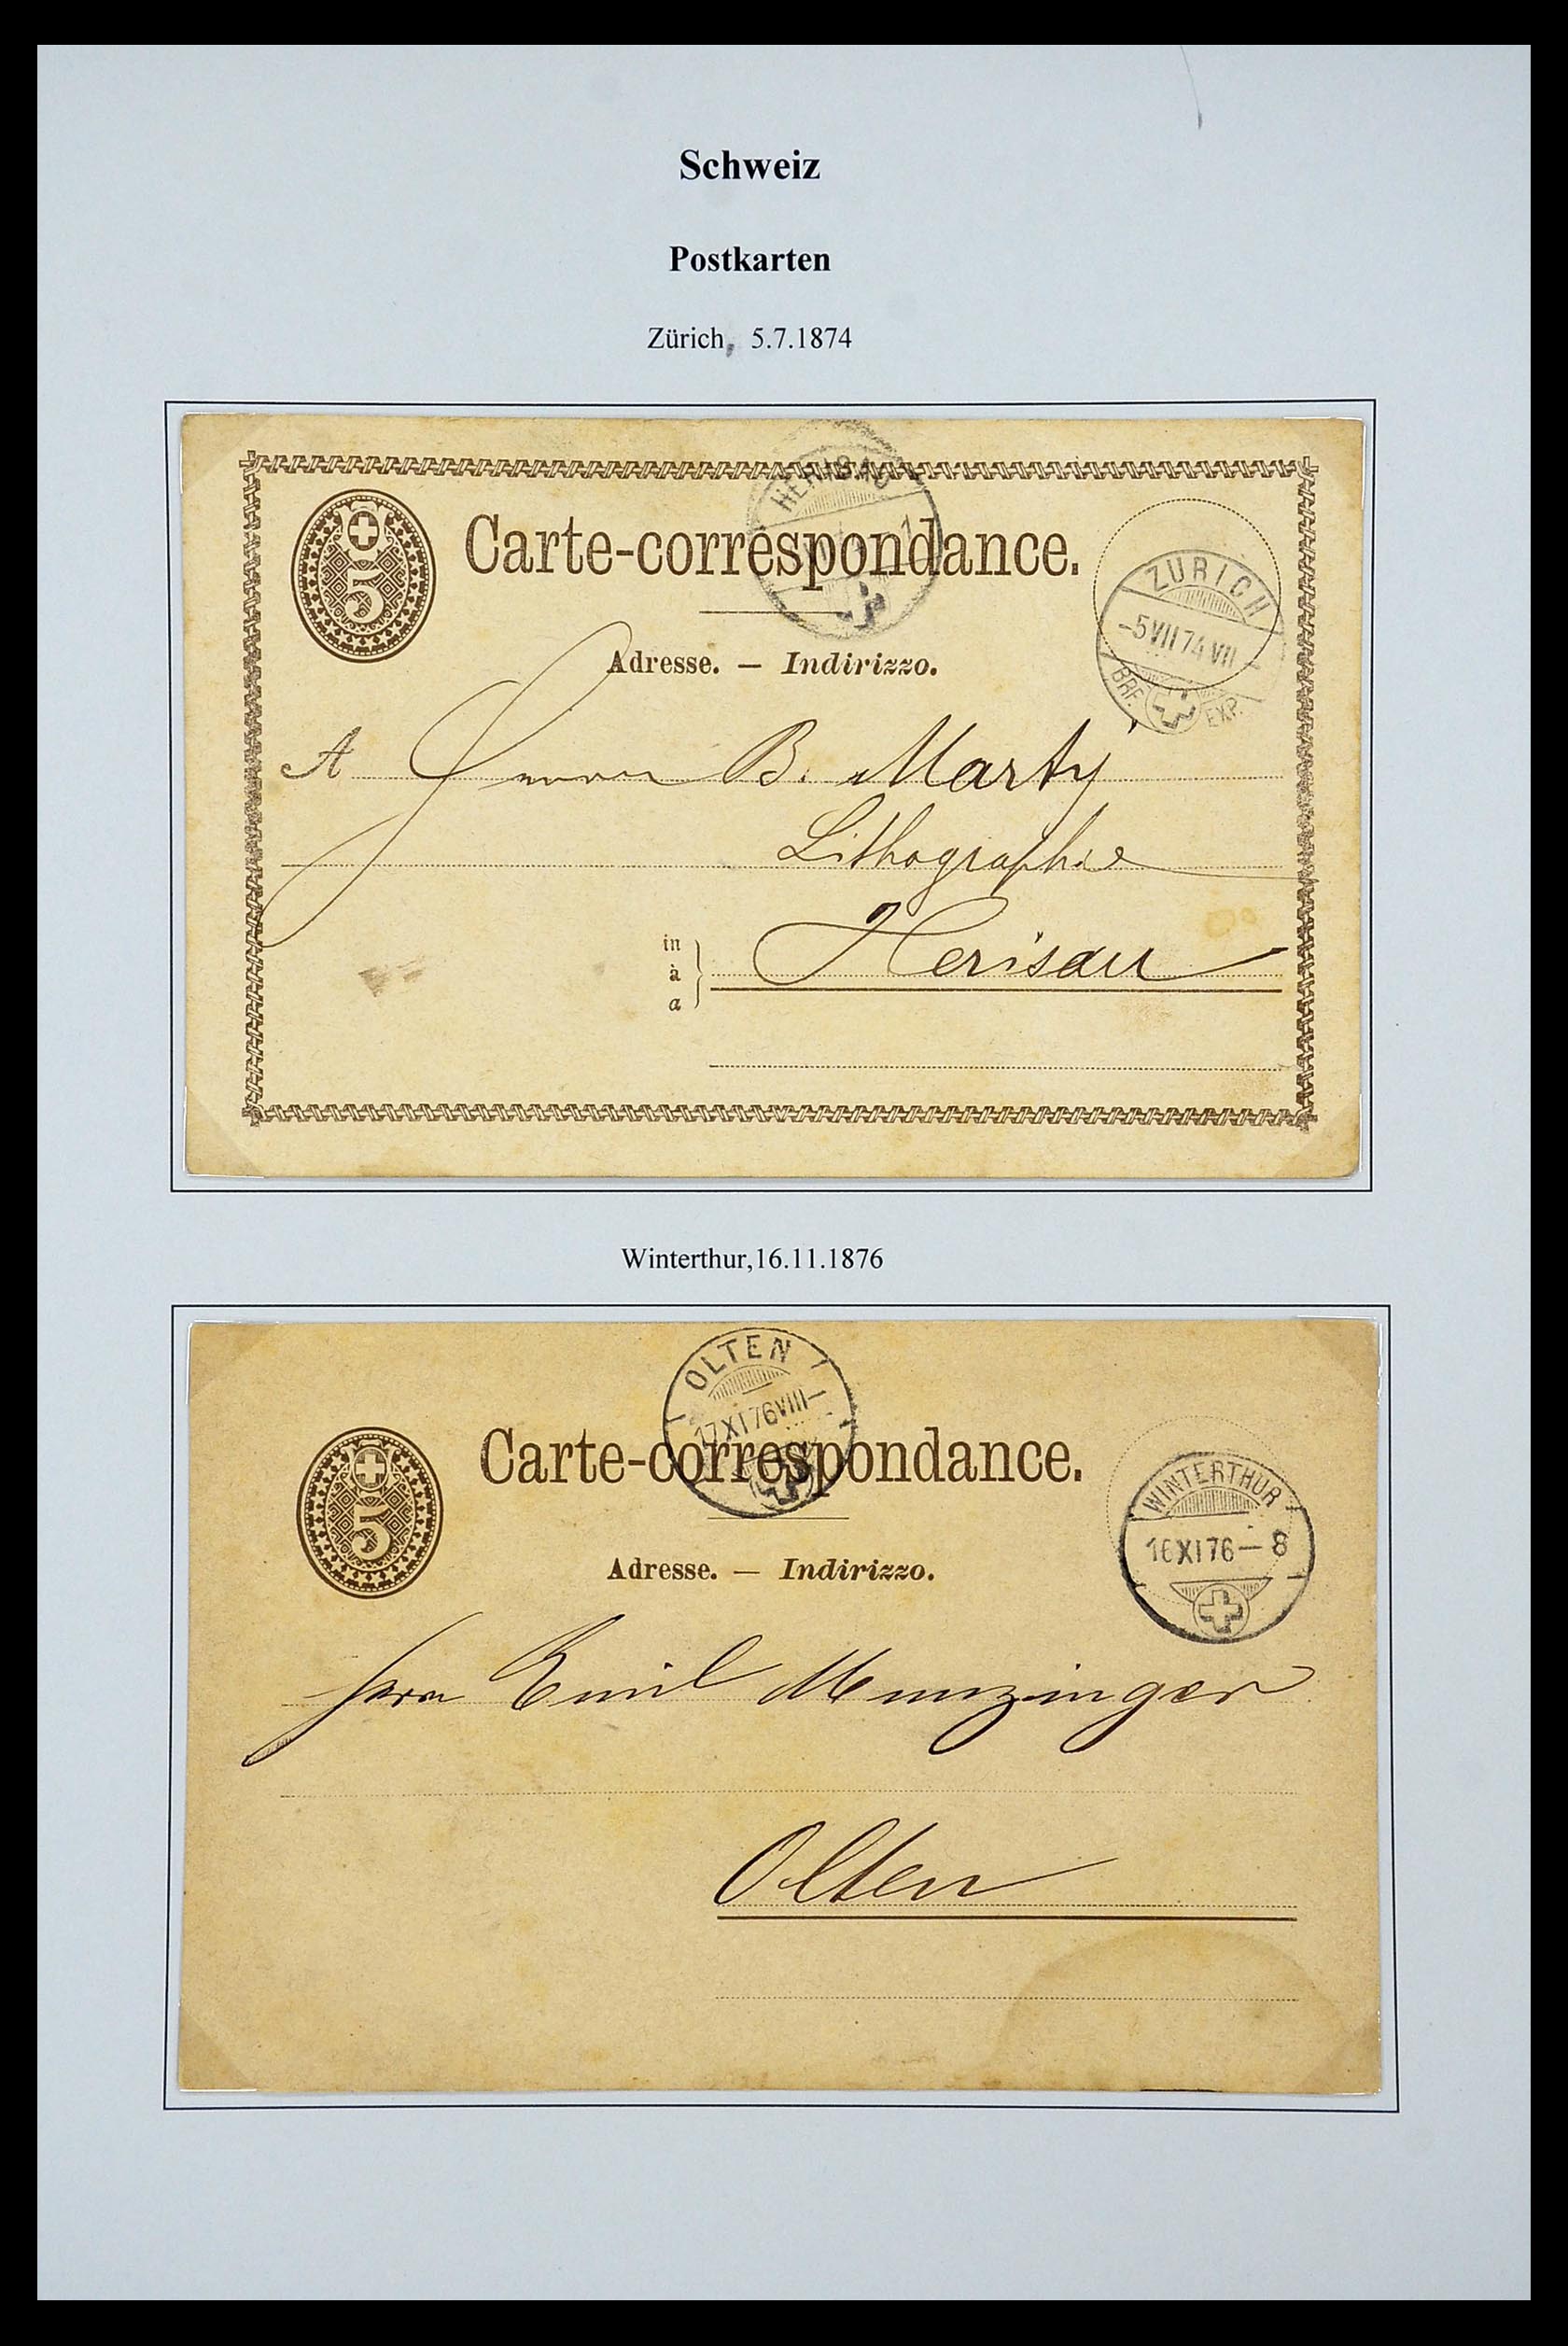 Schweiz
Postkarten
Zürich, 5.7.1874
HERISAU
5
Carte-correspondance.
ZÜRICH
-5 VII 74 VII -
BRF. EXP.
Adresse. — Indirizzo.
A Herrn B. Marty
Lithographie
in
à
a
Herisau
Winterthur,16.11.1876
OLTEN
17 XI 76 VIII -
5
Carte-correspondance.
WINTERTHUR
16 XI 76 - 8
Adresse. — Indirizzo.
Herrn Emil Munzinger
Olten